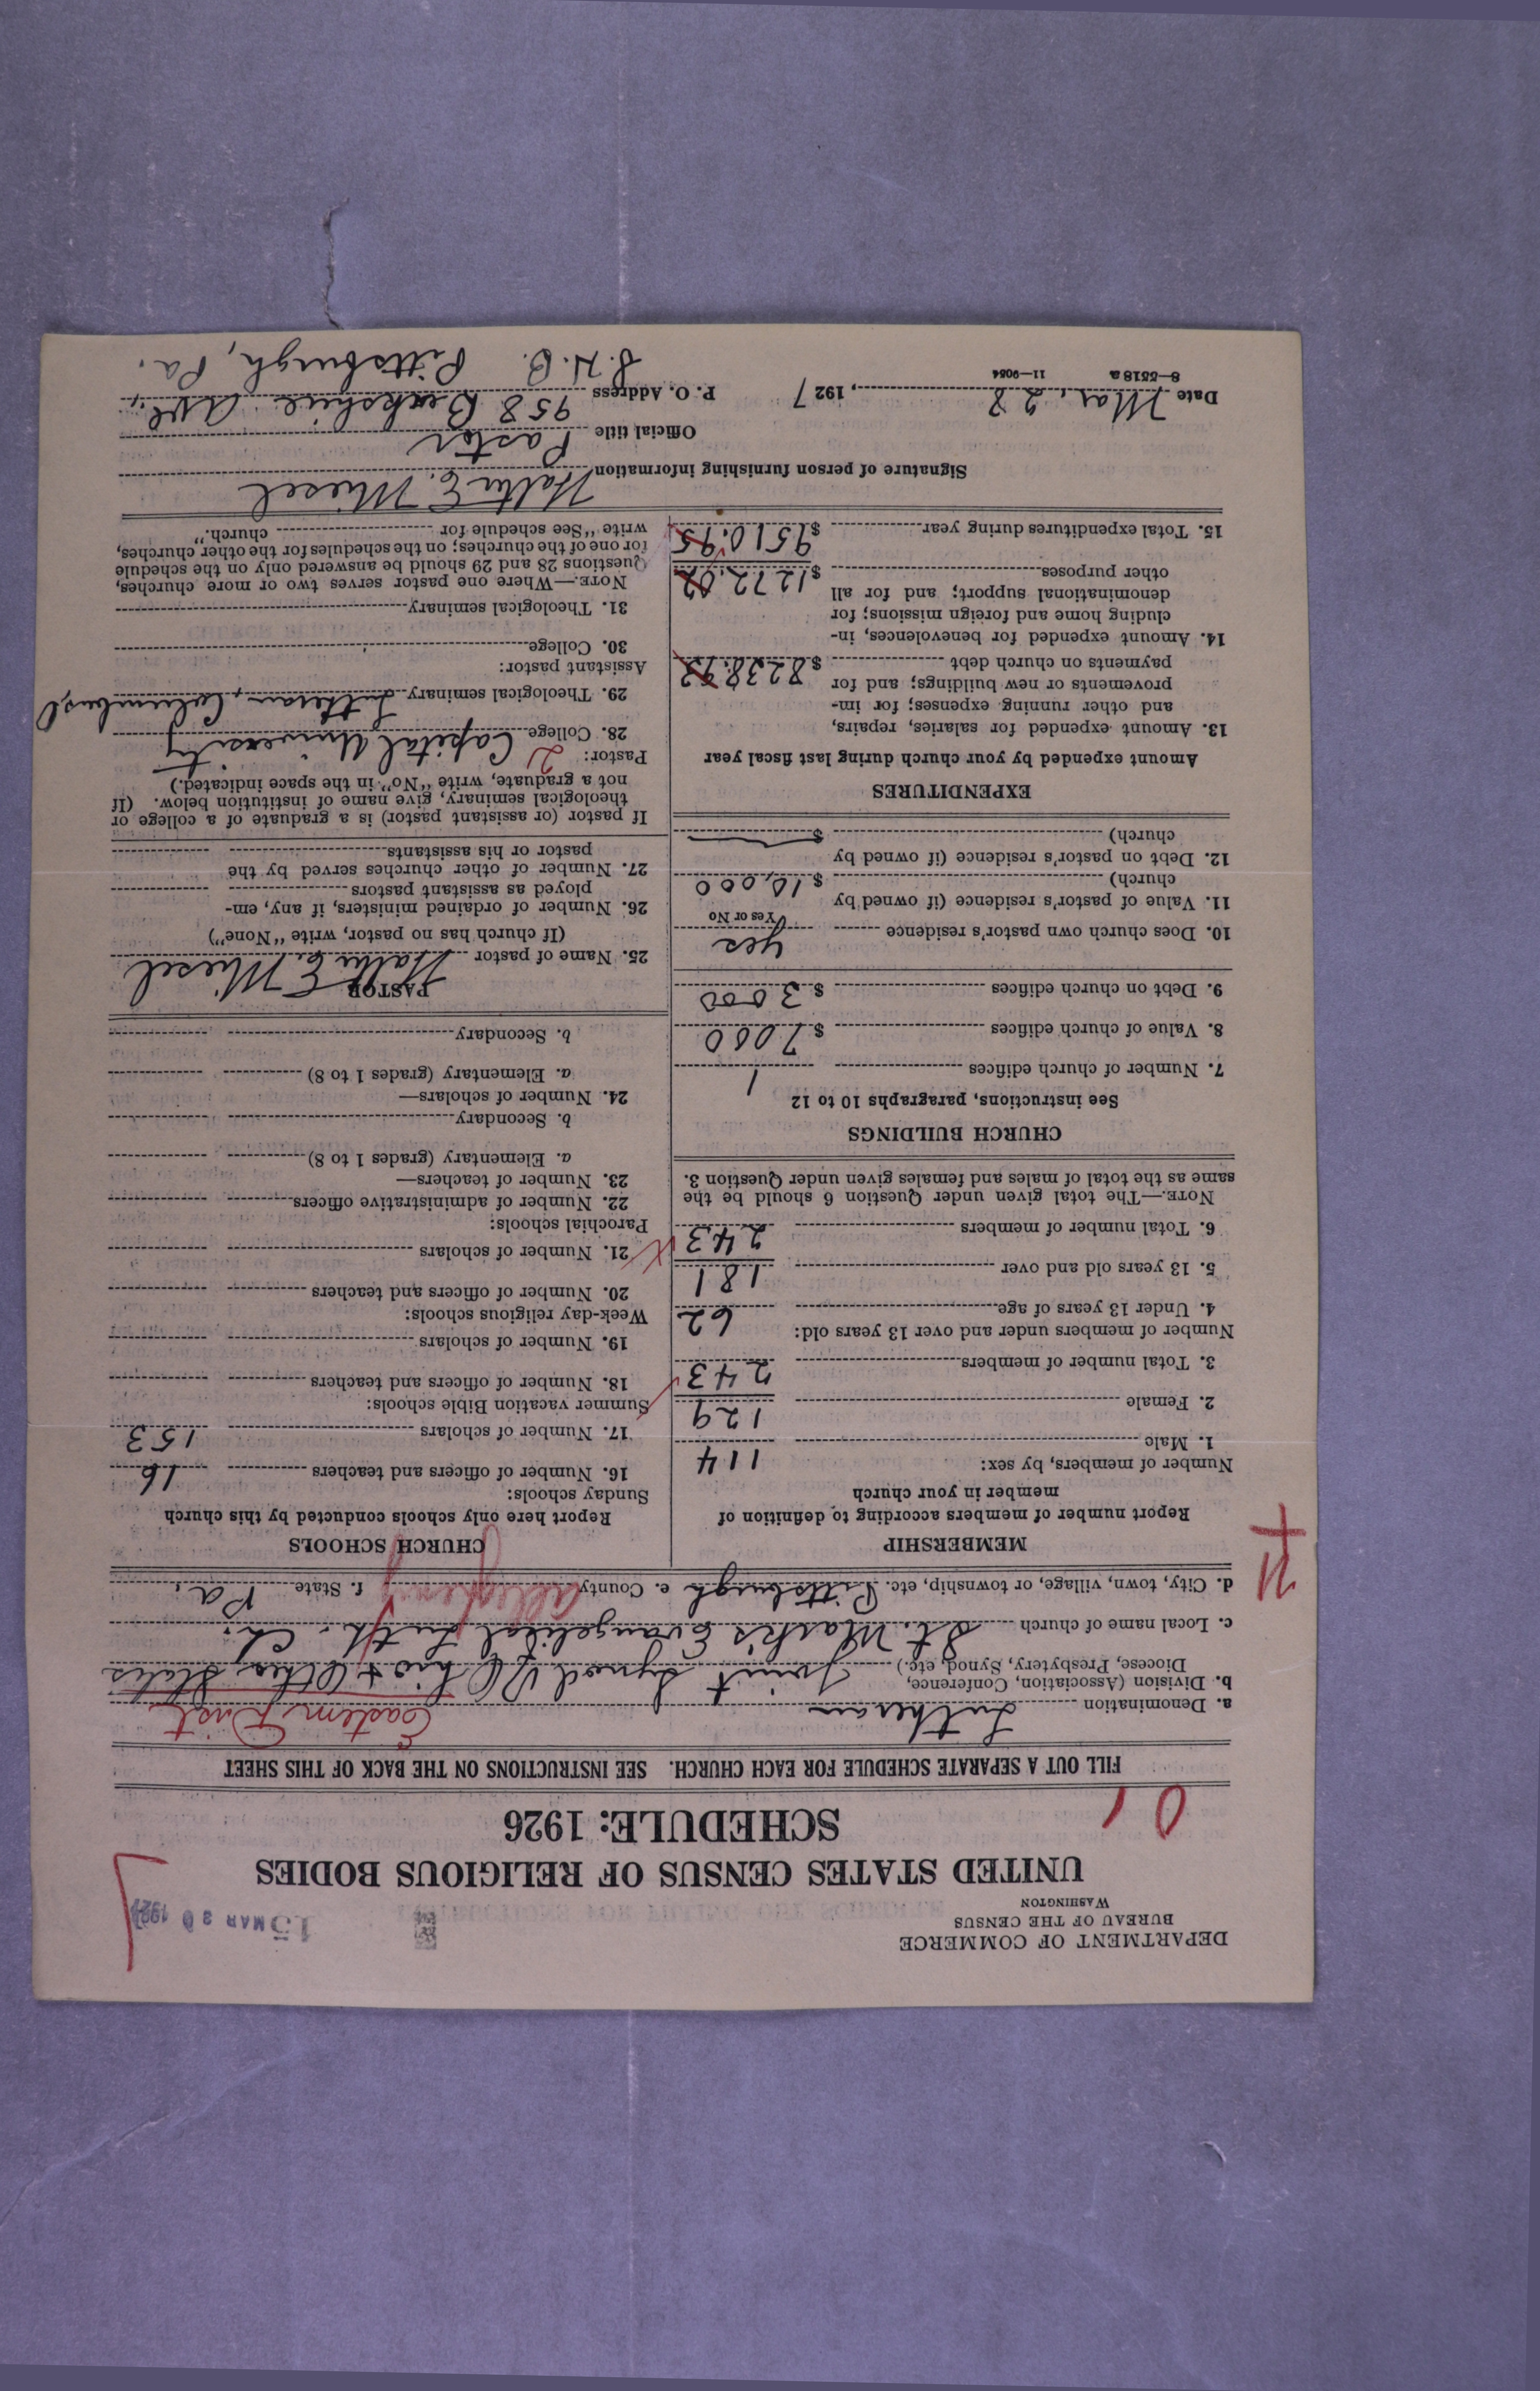 DEPARTMENT OF COMMERCE
BUREAU OF THE CENSUS
WASHINGTON
MAR 30 1927
UNITED STATES CENSUS OF RELIGIOUS BODIES
SCHEDULE: 1926
FILL OUT A SEPARATE SCHEDULE FOR EACH CHURCH. SEE INSTRUCTIONS ON THE BACK OF THIS SHEET
a. Denomination Lutheran Eastern Dist
b. Division (Association, Conference, Diocese, Presbytery, Synod, etc.) Joint Synod of Ohio & Other States
c. Local name of church St. Mark's Evangelical Luth. Ch.
d. City, town, village, or township, etc. Pittsburgh e. County Allegheny f. State Pa.
MEMBERSHIP
Report number of members according to definition of
member in your church
Number of members, by sex:
1. Male 114
2. Female 129
3. Total number of members 243
Number of members under and over 13 years old:
4. Under 13 years of age 62
5. 13 years old and over 181
6. Total number of members 243
NOTE.—The total given under Question 6 should be the
same as the total of males and females given under Question 3.
CHURCH BUILDINGS
See instructions, paragraphs 10 to 12
7. Number of church edifices 1
8. Value of church edifices $ 7000
9. Debt on church edifices $ 3000
10. Does church own pastor's residence yes
Yes or No
11. Value of pastor's residence (if owned by
church) $ 10,000
12. Debt on pastor's residence (if owned by
church) $
EXPENDITURES
Amount expended by your church during last fiscal year
13. Amount expended for salaries, repairs,
and other running expenses; for im-
provements or new buildings; and for
payments on church debt $ 8238.93
14. Amount expended for benevolences, in-
cluding home and foreign missions; for
denominational support; and for all
other purposes $ 1272.02
15. Total expenditures during year $ 9510.95
CHURCH SCHOOLS
Report here only schools conducted by this church
Sunday schools:
16. Number of officers and teachers 16
17. Number of scholars 153
Summer vacation Bible schools:
18. Number of officers and teachers
19. Number of scholars
Week-day religious schools:
20. Number of officers and teachers
21. Number of scholars
Parochial schools:
22. Number of administrative officers
23. Number of teachers—
a. Elementary (grades 1 to 8)
b. Secondary
24. Number of scholars—
a. Elementary (grades 1 to 8)
b. Secondary
PASTOR
25. Name of pastor Walter E. Miesel
(If church has no pastor, write "None")
26. Number of ordained ministers, if any, em-
ployed as assistant pastors
27. Number of other churches served by the
pastor or his assistants
If pastor (or assistant pastor) is a graduate of a college or
theological seminary, give name of institution below. (If
not a graduate, write "No" in the space indicated.)
Pastor: 2
28. College Capital University
29. Theological seminary Lutheran, Columbus, O
Assistant pastor:
30. College
31. Theological seminary
NOTE.—Where one pastor serves two or more churches,
Questions 28 and 29 should be answered only on the schedule
for one of the churches; on the schedules for the other churches,
write "See schedule for church."
Signature of person furnishing information Walter E. Miesel
Official title Pastor
Date Mar. 28, 1927 P. O. Address 958 Berkshire Ave.,
S. H. B. Pittsburgh, Pa.
8—5518 a 11—9034